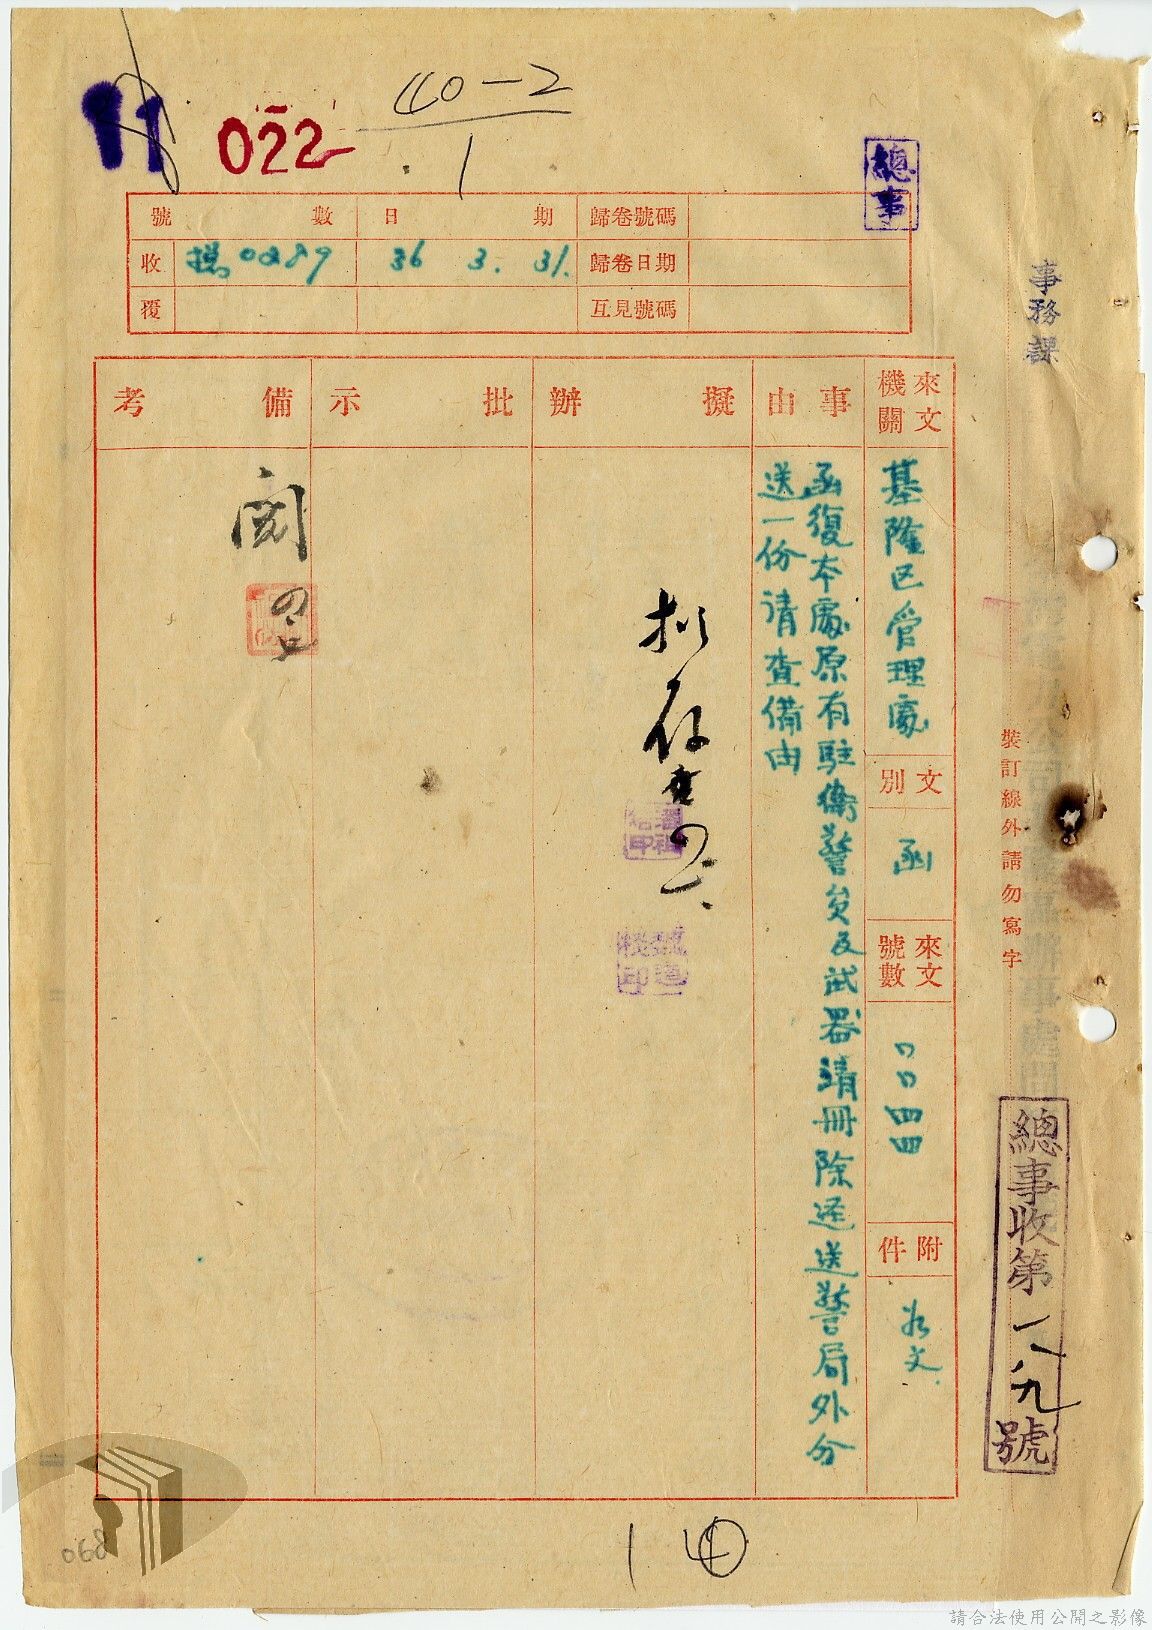 11
022
40-2
1
總事
號數
日期
歸卷號碼
收
0289
36 3. 31.
歸卷日期
覆
互見號碼
事務課
來文機關
基隆区管理處
文別
函
來文號數
口口四四
附件
如文
事由
函復本處原有駐衛警員及武器清冊除逕送警局外分
送一份請查備由
擬辦
拟存查
批示
備考
閱
裝訂線外請勿寫字
總事收第一八九號
1 40
068
請合法使用公開之影像